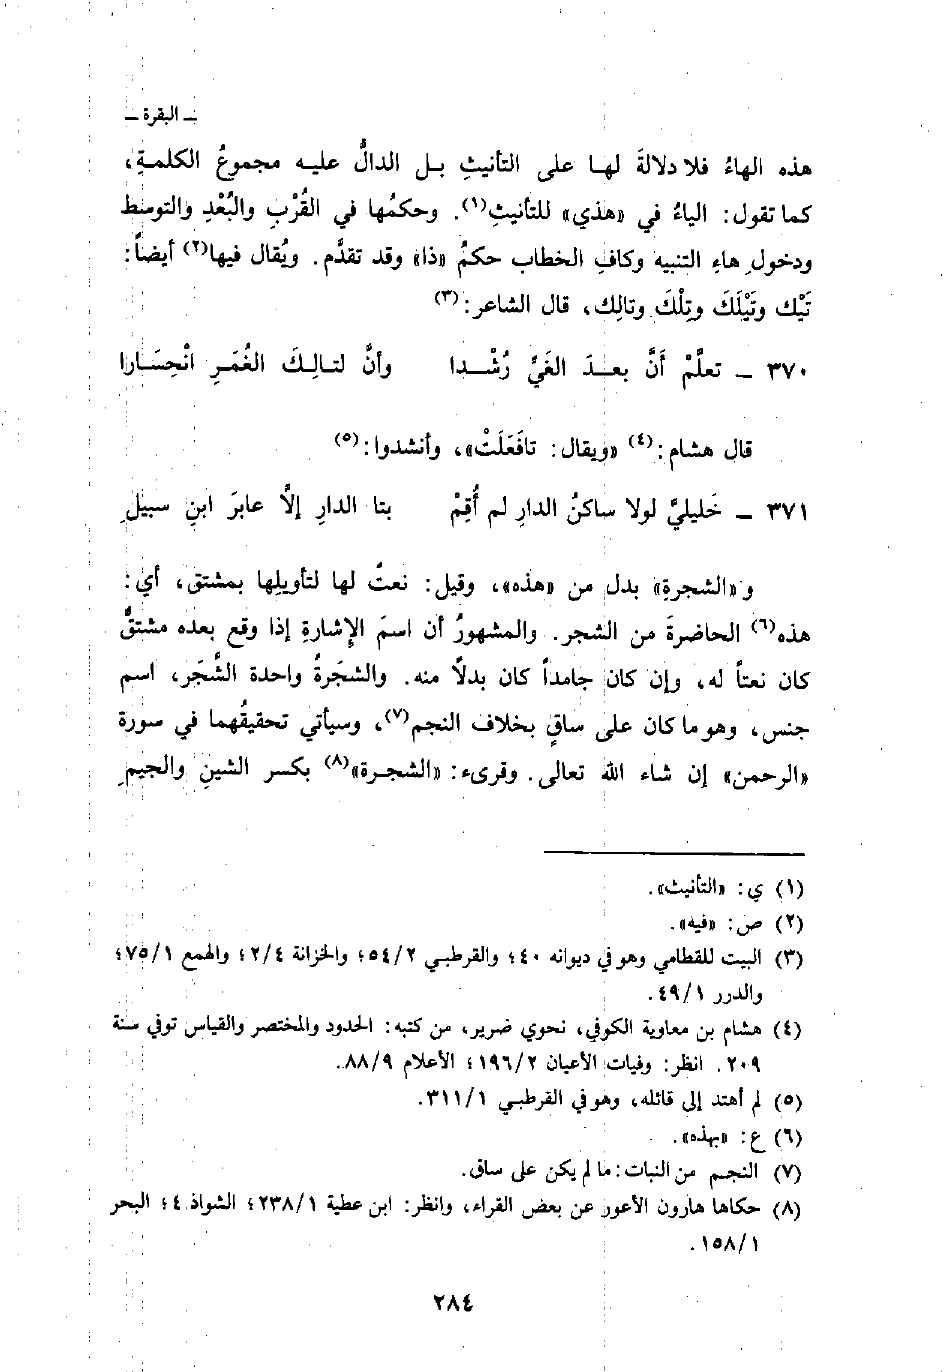 ـ البقرة ـ
هذه الهاءُ فلا دلالةَ لهـا على التأنيثِ بـل الدالُّ عليـه مجموعُ الكلمـةِ،
كما تقول: الياءُ في «هذي» للتأنيثِ(١). وحكمُها في القُرْبِ والبُعْدِ والتوسط
ودخولِ هاءِ التنبيه وكافِ الخطاب حكمُ «ذا» وقد تقدَّم. ويُقال فيها(٢) أيضاً:
تَيْكَ وتَيْلَكَ وتِلْكَ وتالِك، قال الشاعر:(٣)
٣٧٠ ـ تعلَّمْ أَنَّ بعـدَ الغَيِّ رُشْـدا وأنَّ لتـالِـكَ الغُمَـرِ انْحِسَـارا
قال هشام:(٤) «ويقال: تافَعَلَتْ»، وأنشدوا:(٥)
٣٧١ ـ خَليليَّ لولا ساكنُ الدارِ لم أُقِمْ بتا الدارِ إلَّا عابرَ ابنِ سبيلِ
و«الشجرةِ» بدل من «هذه»، وقيل: نعتٌ لها لتأويلِها بمشتق، أي:
هذه(٦) الحاضرةَ من الشجر. والمشهورُ أن اسمَ الإِشارةِ إذا وقع بعده مشتقٌّ
كان نعتاً له، وإن كان جامداً كان بدلاً منه. والشجَرةُ واحدة الشَّجَر، اسم
جنس، وهو ما كان على ساقٍ بخلاف النجم(٧)، وسيأتي تحقيقُهما في سورة
«الرحمن» إن شاء الله تعالى. وقرىء: «الشجـرة»(٨) بكسر الشينِ والجيمِ
(١) ي: «التأنيث».
(٢) ص: «فيه».
(٣) البيت للقطامي وهو في ديوانه ٤٠؛ والقرطبي ٥٤/٢؛ والخزانة ٢/٤؛ والهمع ٧٥/١؛
والدرر ٤٩/١.
(٤) هشام بن معاوية الكوفي، نحوي ضرير، من كتبه: الحدود والمختصر والقياس توفي سنة
٢٠٩. انظر: وفيات الأعيان ١٩٦/٢؛ الأعلام ٨٨/٩.
(٥) لم أهتد إلى قائله، وهو في القرطبي ٣١١/١.
(٦) ع: «بهذه».
(٧) النجـم من النبات: ما لم يكن على ساق.
(٨) حكاها هارون الأعور عن بعض القراء، وانظر: ابن عطية ٢٣٨/١؛ الشواذ ٤؛ البحر
١٥٨/١.
٢٨٤